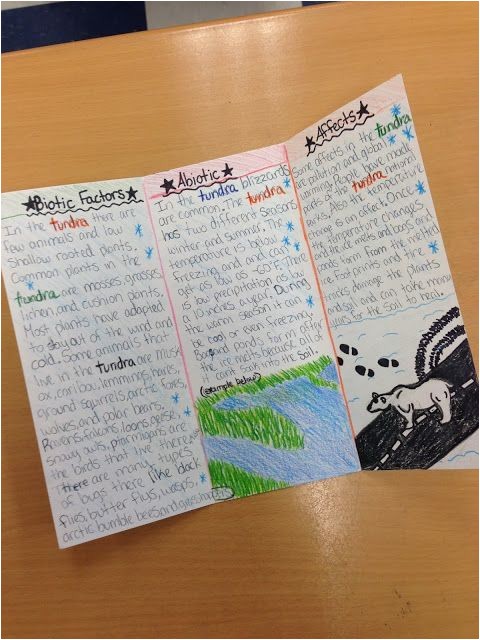 Biotic Factors
In the tundra there are
few animals and low
shallow rooted plants.
Common plants in the
tundra are mosses, grasses,
lichen and cushion plants.
Most plants have adapted
to stay out of the wind and
cold. Some animals that
live in the tundra are musk
ox, caribou, lemmings, hares,
ground squirrels, arctic foxes,
wolves, and polar bears.
Ravens, falcons, loons, geese,
snowy owls, ptarmigans are
the birds that live there
there are many types
of bugs there like black
flies, butter flys, wasps,
arctic bumble bees and grasshoppers
Abiotic
In the tundra blizzards
are common. The tundra
has two different seasons
winter and summer. The
temperature is below
freezing and and can
get as low as -60°F. There
is low precipitation as low
a 10 inches a year. During
the warm season it can
be cool or even freezing.
Bogs and ponds form after
the ice melts because all of
cant soak into the soil.
(example below)
Affects
Some affects in the tundra
are pollution and global
warming. Peple have made
parts of the tundra national
parks. Also the temperature
change is an effect. Once
the temperature changes
and the ice melts and bogs and
ponds form from the melted
ice. Foot prints and tire
tracks damage the plants
and soil and can take many
years for the soil to heal.